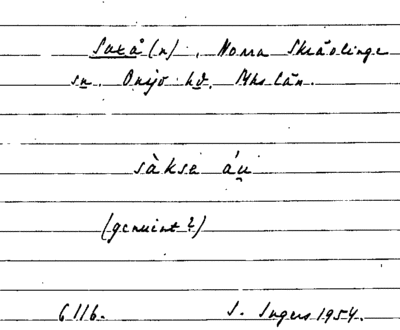 Saxå (n), Norra Skrävlinge
sn. Onsjö hd. Mhs län.
sàksa áu̯
(genuint?)
6116. I. Ingers 1954.